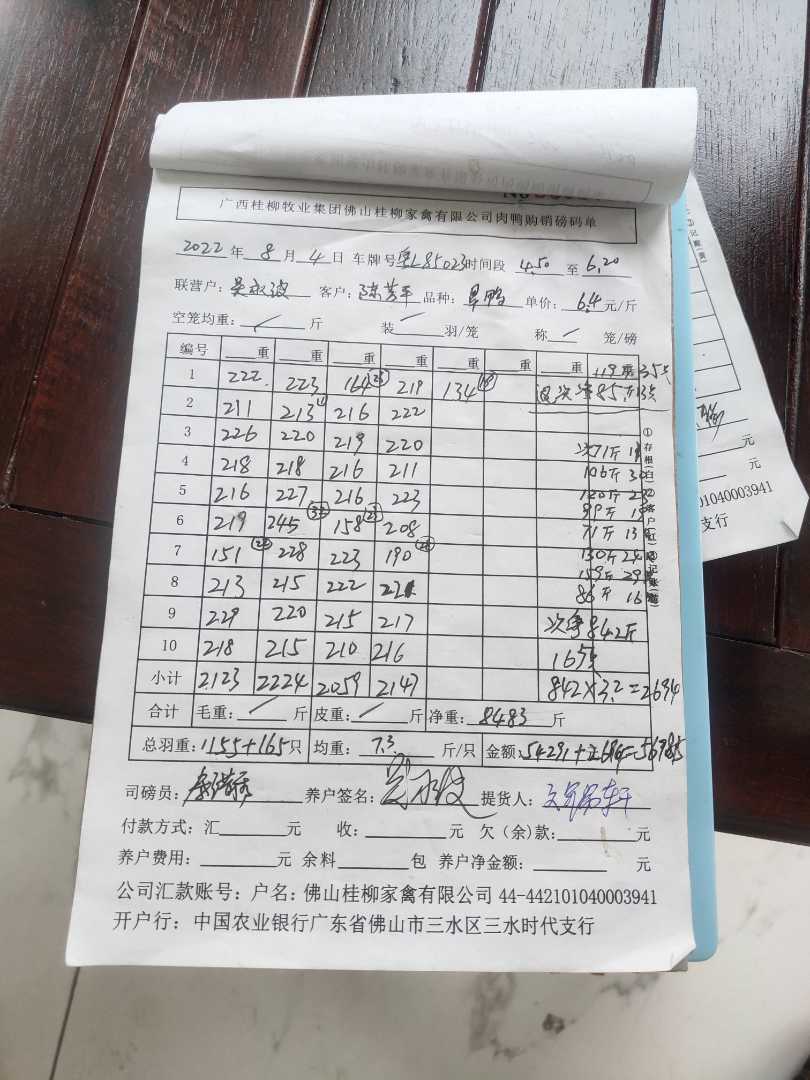 广西桂柳牧业集团佛山桂柳家禽有限公司肉鸭购销磅码单
2022 年 8 月 4 日 车牌号 粤L85023 时间段 4.50 至 6.20
联营户： 客户：陈芳平 品种： 鸭 单价：6.4 元/斤
空笼均重：/ 斤 装 羽/笼 称 / 笼/磅
编号 重 重 重 重 重 重 重
1 222 223 164 (23) 219 134 (19)
2 211 213 216 222
3 226 220 219 220 次71斤
4 218 218 216 211 106斤 30
5 216 227 216 223 120斤 23
6 219 245 (32) 158 (23) 208 71斤 13
7 151 (22) 228 223 190 (28) 130斤 24
8 213 215 222 221 86斤 16
9 229 220 215 217 842斤
10 218 215 210 216 165只
小计 2123 2224 2059 2147 842×3.2=2694
合计 毛重：/ 斤 皮重：/ 斤 净重：8483 斤
总羽重：1155+165 只 均重：7.3 斤/只 金额：54291+2694=56985
司磅员： 养户签名： 提货人：
付款方式：汇 元 收： 元 欠（余）款： 元
养户费用： 元 余料 包 养户净金额： 元
公司汇款账号：户名：佛山桂柳家禽有限公司 44-442101040003941
开户行：中国农业银行广东省佛山市三水区三水时代支行
①存根(白)②客户(红)③记账(黄)
元
元
01040003941
支行